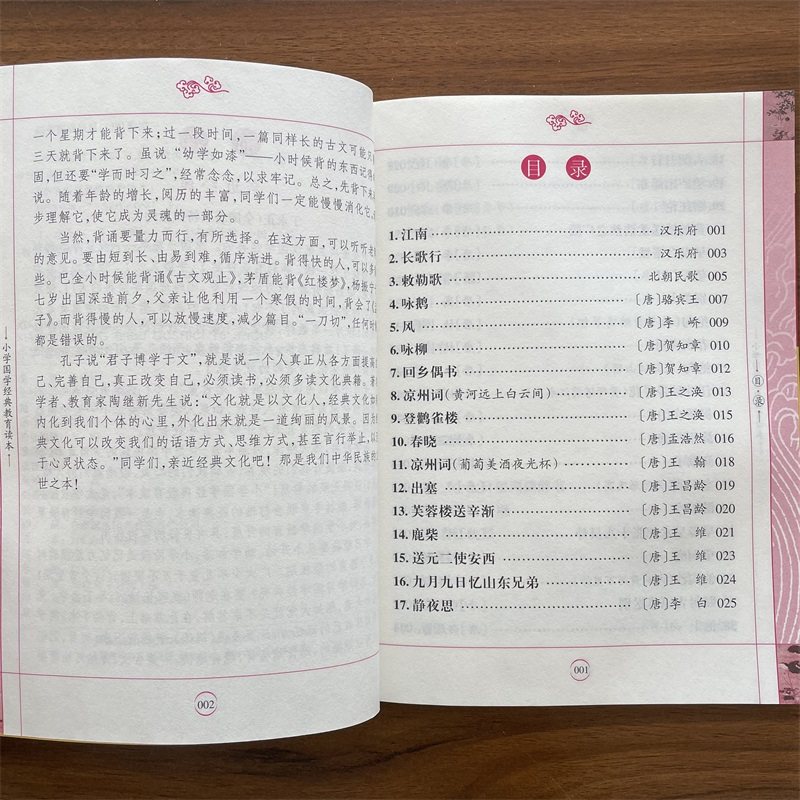 一个星期才能背下来；过一段时间，一篇同样长的古文可能只
三天就背下来了。虽说“幼学如漆”——小时候背的东西记得
固，但还要“学而时习之”，经常念念，以求牢记。总之，先背下来
说。随着年龄的增长，阅历的丰富，同学们一定能慢慢消化它，
步理解它，使它成为灵魂的一部分。
当然，背诵要量力而行，有所选择。在这方面，可以听听老
的意见。要由短到长、由易到难，循序渐进。背得快的人，可以多
些。巴金小时候能背诵《古文观止》，茅盾能背《红楼梦》，杨振宁
七岁出国深造前夕，父亲让他利用一个寒假的时间，背会了《
子》。而背得慢的人，可以放慢速度，减少篇目。“一刀切”，任何时
都是错误的。
孔子说“君子博学于文”，就是说一个人真正从各方面提高
己、完善自己，真正改变自己，必须读书，必须多读文化典籍。著
学者、教育家陶继新先生说：“文化就是以文化人，经典文化如
内化到我们个体的心里，外化出来就是一道绚丽的风景。因为
典文化可以改变我们的话语方式、思维方式，甚至言行举止，以
于心灵状态。”同学们，亲近经典文化吧！那是我们中华民族的
世之本！
小学国学经典教育读本
002
目录
1. 江南 汉乐府 001
2. 长歌行 汉乐府 003
3. 敕勒歌 北朝民歌 005
4. 咏鹅 〔唐〕骆宾王 007
5. 风 〔唐〕李峤 009
6. 咏柳 〔唐〕贺知章 010
7. 回乡偶书 〔唐〕贺知章 012
8. 凉州词(黄河远上白云间) 〔唐〕王之涣 013
9. 登鹳雀楼 〔唐〕王之涣 015
10. 春晓 〔唐〕孟浩然 016
11. 凉州词(葡萄美酒夜光杯) 〔唐〕王翰 018
12. 出塞 〔唐〕王昌龄 019
13. 芙蓉楼送辛渐 〔唐〕王昌龄 020
14. 鹿柴 〔唐〕王维 021
15. 送元二使安西 〔唐〕王维 023
16. 九月九日忆山东兄弟 〔唐〕王维 024
17. 静夜思 〔唐〕李白 025
目录
001